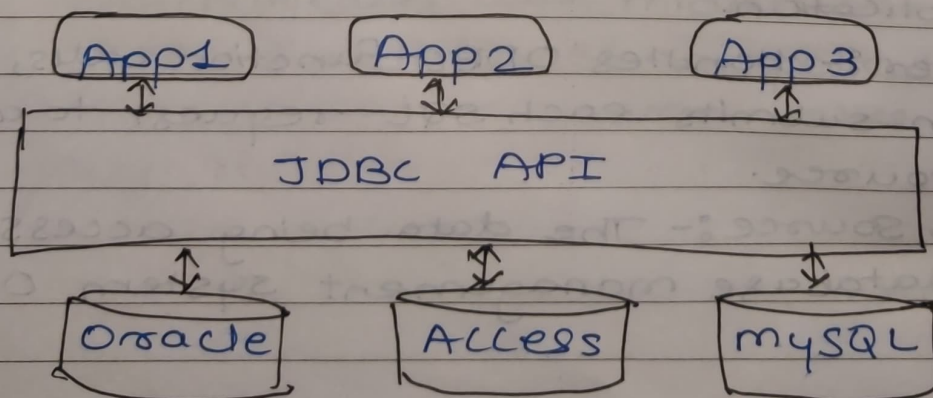 App1 App2 App3
JDBC API
Oracle Access MySQL